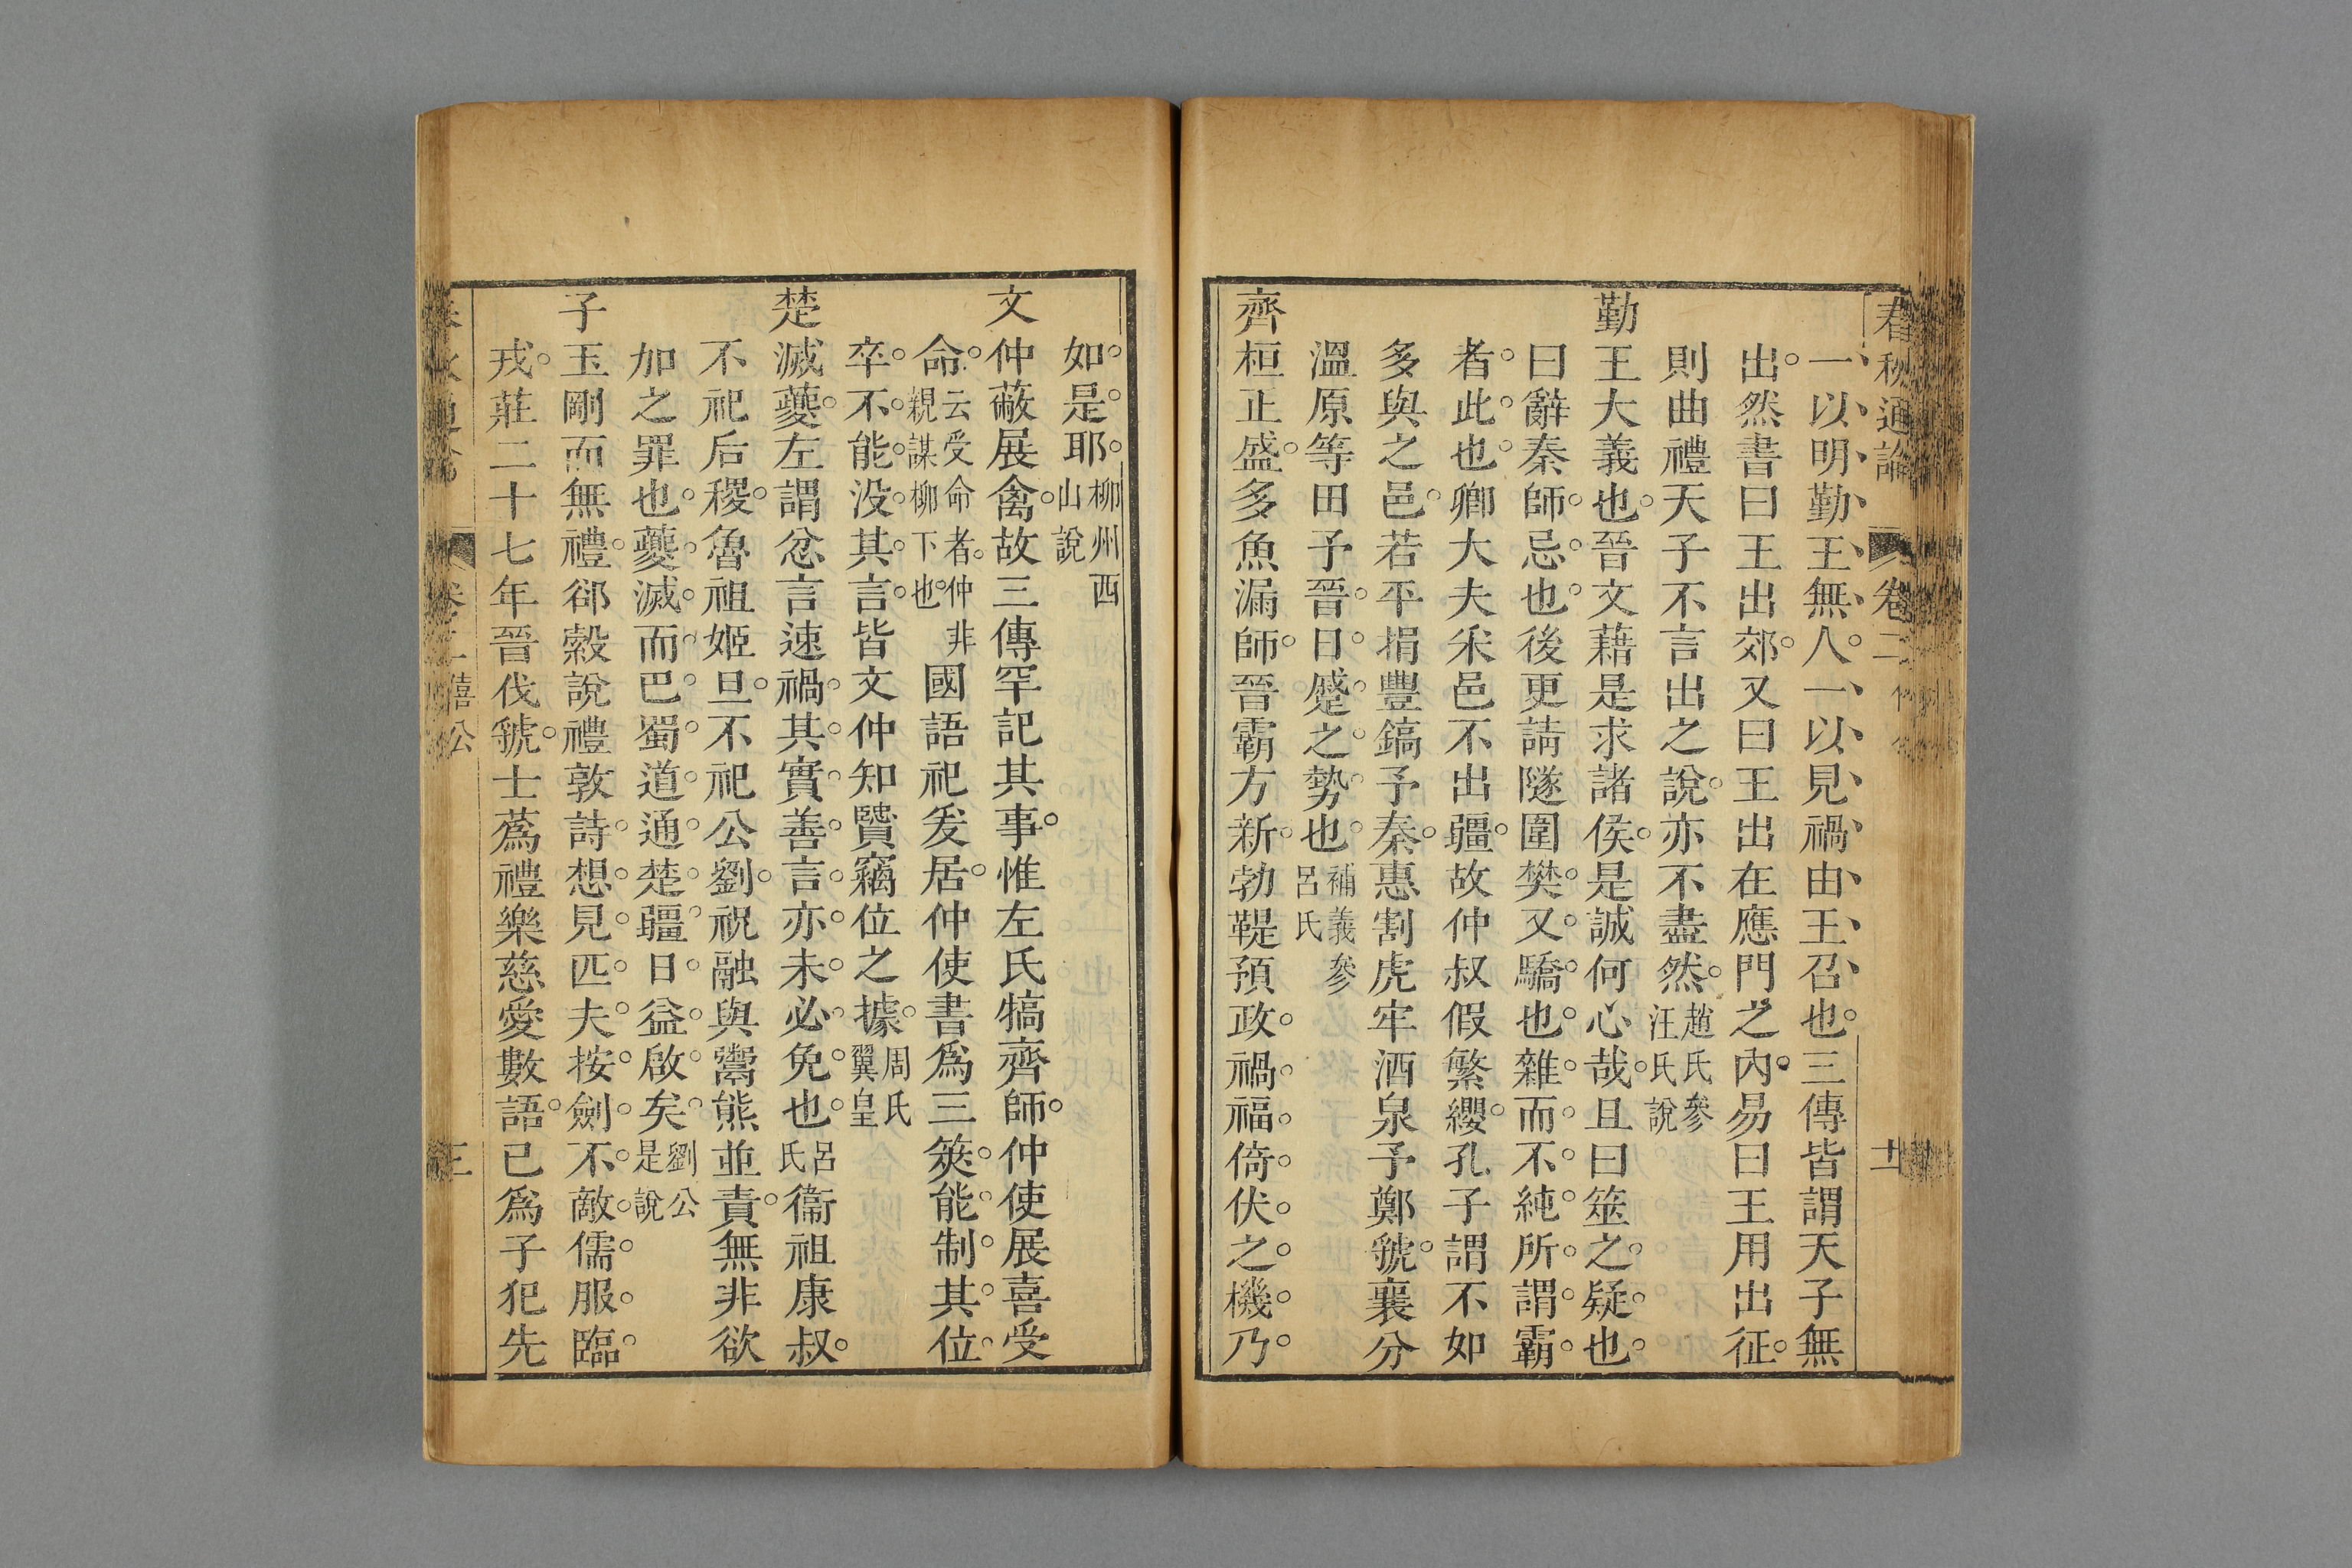 春秋通論 卷二 十二
一以明勤王無人一以見禍由王召也三傳皆謂天子無
出然書曰王出郊又曰王出在應門之內易曰王用出征
則曲禮天子不言出之說亦不盡然趙氏參汪氏說
勤王大義也晉文藉是求諸侯是誠何心哉且曰筮之疑也
曰辭秦師忌也後更請隧圍樊又驕也雜而不純所謂霸
者此也卿大夫采邑不出疆故仲叔假繁纓孔子謂不如
多與之邑若平捐豐鎬予秦惠割虎牢酒泉予鄭虢襄分
溫原等田予晉日蹙之勢也補義參呂氏
齊桓正盛多魚漏師晉霸方新勃鞮預政禍福倚伏之機乃
如是耶柳州西山說
文仲蔽展禽故三傳罕記其事惟左氏犒齊師仲使展喜受
命云受命者仲非親謀柳下也國語祀爰居仲使書為三筴能制其位
卒不能沒其言皆文仲知賢竊位之據周氏翼皇
楚滅夔左謂忿言速禍其實善言亦未必免也呂氏衞祖康叔
不祀后稷魯祖姬旦不祀公劉祝融與鬻熊並責無非欲
加之罪也夔滅而巴蜀道通楚疆日益啟矣劉公是說
子玉剛而無禮郤縠說禮敦詩想見匹夫按劍不敵儒服臨
戎莊二十七年晉伐虢士蒍禮樂慈愛數語已為子犯先
卷二 僖公 三